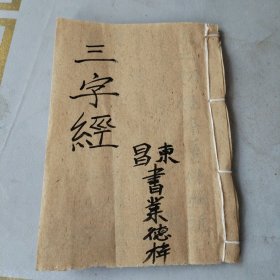 三字經
東昌書業德梓